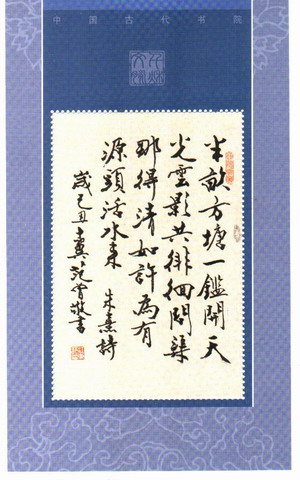 中国古代书院
半畝方塘一鑑開天
光雲影共徘徊問渠
那得清如許為有
源頭活水来 朱熹詩
歲己丑十翼范曾敬書